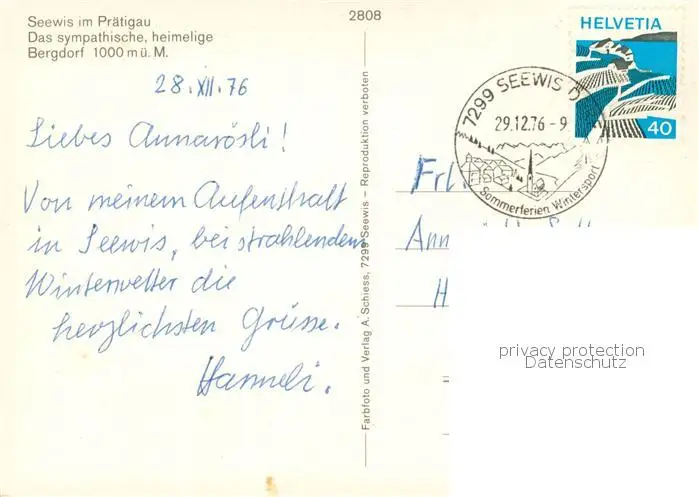 Seewis im Prätigau
Das sympathische, heimelige
Bergdorf 1000 m ü. M.
2808
HELVETIA
40
7299 SEEWIS D
29.12.76-9
Sommerferien Wintersport
28. XII. 76
Liebes Annarösli!
Von meinem Aufenthalt
in Seewis, bei strahlendem
Winterwetter die
herzlichsten Grüsse.
Hanneli.
Farbfoto und Verlag A. Schiess, 7299 Seewis – Reproduktion verboten
Frl.
Ann
H
privacy protection
Datenschutz